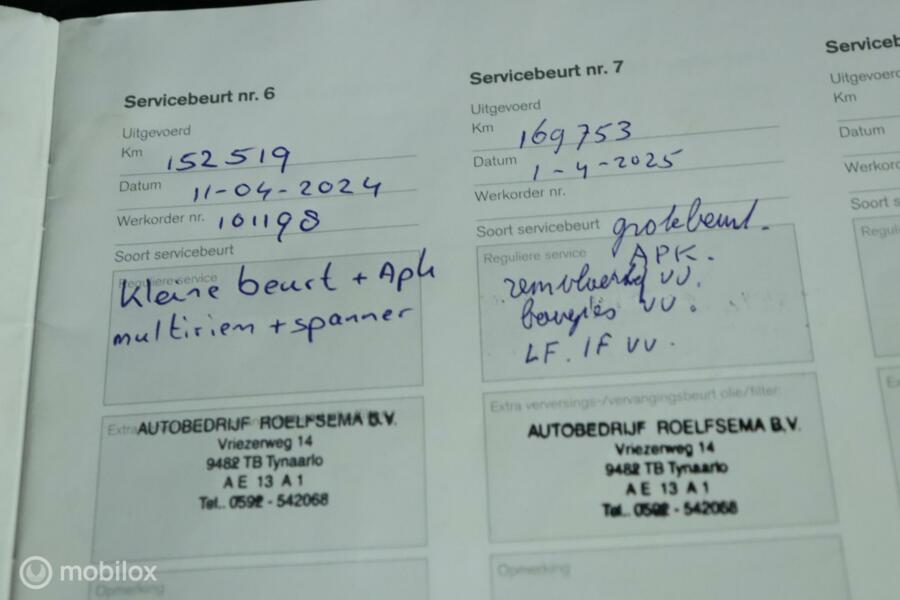 Servicebeurt nr. 6
Uitgevoerd
Km 152519
Datum 11-04-2024
Werkorder nr. 101198
Soort servicebeurt
Reguliere service
Kleine beurt + Apk
multiriem + spanner
Extra
AUTOBEDRIJF ROELFSEMA B.V.
Vriezerweg 14
9482 TB Tynaarlo
AE 13 A1
Tel.. 0592 - 542068
Opmerking
Servicebeurt nr. 7
Uitgevoerd
Km 169753
Datum 1-4-2025
Werkorder nr.
Soort servicebeurt grote beurt.
Reguliere service APK.
remvloeistof VV.
bougies VV.
LF. IF VV.
Extra verversings-/vervangingsbeurt olie/filter:
AUTOBEDRIJF ROELFSEMA B.V.
Vriezerweg 14
9482 TB Tynaarlo
AE 13 A1
Tel.. 0592 - 542068
Opmerking
Serviceb
Uitgevoerd
Km
Datum
Werkord
Soort s
Regul
Ex
mobilox